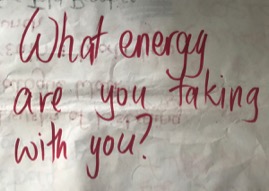 What energy
are you taking
with you?